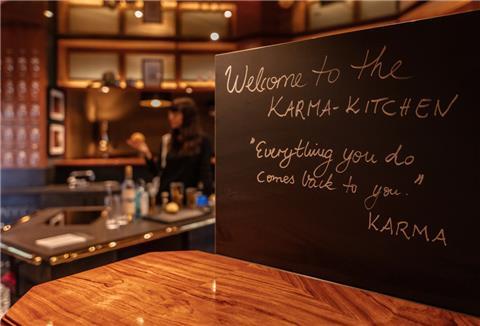 Welcome to the
KARMA-KITCHEN
"Everything you do
comes back to you."
KARMA